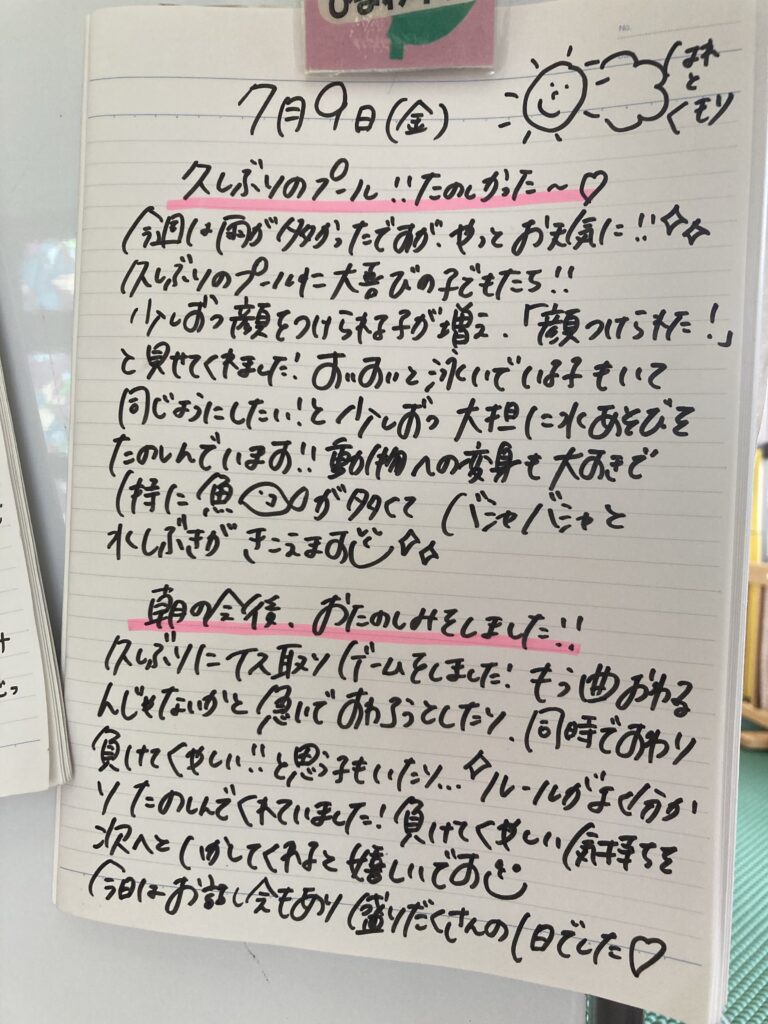 No.
7月9日(金)
はれ
と
くもり
久しぶりのプール!!たのしかった〜♡
今週は雨が多かったですが、やっとお天気に!!
久しぶりのプールに大喜びの子どもたち!!
少しずつ顔をつけられる子が増え、「顔つけられた!」
と見せてくれました!すいすいと泳いでいる子もいて
同じようにしたい!と少しずつ大胆に水あそびを
たのしんでいます!!動物への変身も大すきで
特に魚が多くてバシャバシャと
水しぶきがきこえます
朝の会後、おたのしみをしました!!
久しぶりにイス取りゲームをしました!もう曲おわる
んじゃないかと急いですわろうとしたり、同時ですわり
負けてくやしい!!と思う子もいたり...ルールがよく分か
りたのしんでくれていました!負けてくやしい気持ちを
次へといかしてくれると嬉しいです
今日はお話し会もあり盛りだくさんの1日でした♡